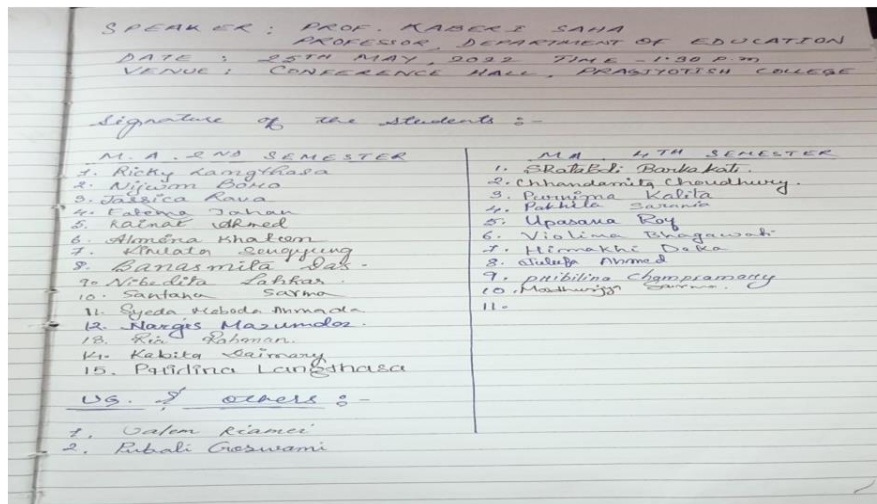 SPEAKER : PROF. KABERI SAHA
PROFESSOR, DEPARTMENT OF EDUCATION
DATE : 25TH MAY, 2022 TIME - 1:30 P.m
VENUE : CONFERENCE HALL, PRAGJYOTISH COLLEGE
Signature of the students :-
M.A. 2ND SEMESTER
1. Ricky Langthasa
2. Nijwm Boro
3. Jassica Rava
4. Fatema Jahan
5. Rainat Ahmed
6. Almina Khatun
7.
8. Banasmita Das
9. Nibedita Lahkar
10. Santana Sarma
11. Syeda Ahmada
12. Nargis Mazumdar.
13. Ria Rahman.
14. Kabita Daimary
15. Pridina Langthasa
UG. & others :-
1. Riamei
2. Pubali Goswami
MA 4TH SEMESTER
1. Barkakati.
2. Chhandamita Choudhury.
3. Purnima Kalita
4. Pakhila Sarania
5. Upasana Roy
6. Violina Bhagawati
7. Himakhi Deka
8. Ahmed
9. Champramary
10. Sarma.
11-